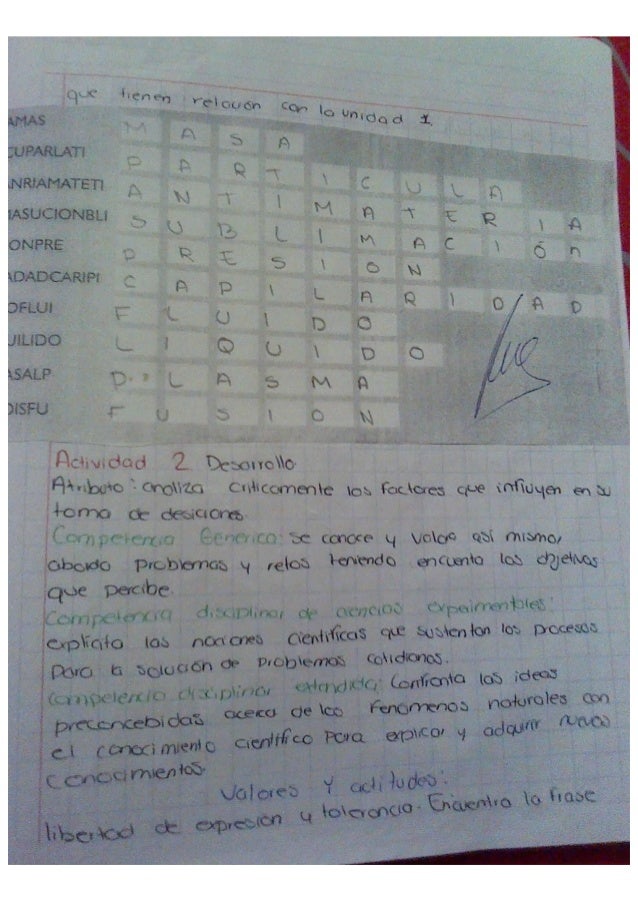 que tienen relación con la unidad 1.
AMAS M A S A
CUPARLATI P A R T I C U L A
NRIAMATETI A N T I M A T E R I A
IASUCIONBLI S U B L I M A C I Ó n
ONPRE P R E S I O N
ADADCARIPI C A P I L A R I D A D
OFLUI F L U I D O
UILIDO L I Q U I D O
ASALP P L A S M A
DISFU F U S I O N
Actividad 2 Desarrollo
Atributo: analiza criticamente los factores que influyen en su
toma de desiciones.
Competencia Generica: se conoce y valora asi mismo,
aborda problemas y retos teniendo encuenta los objetivos
que percibe.
Competencia disciplinar de ciencias expeimentbles:
explicita las nociones científicas que sustentan los procesos
para la solución de problemas cotidianos.
Competencia disciplinar extendida: Confronta las ideas
preconcebidas acerca de los fenomenos naturales con
el conocimiento científico para explicar y adquirir nuevos
conocimientos.
Valores y actitudes:
libertad de expresión y tolerancia. Encuentra la frase